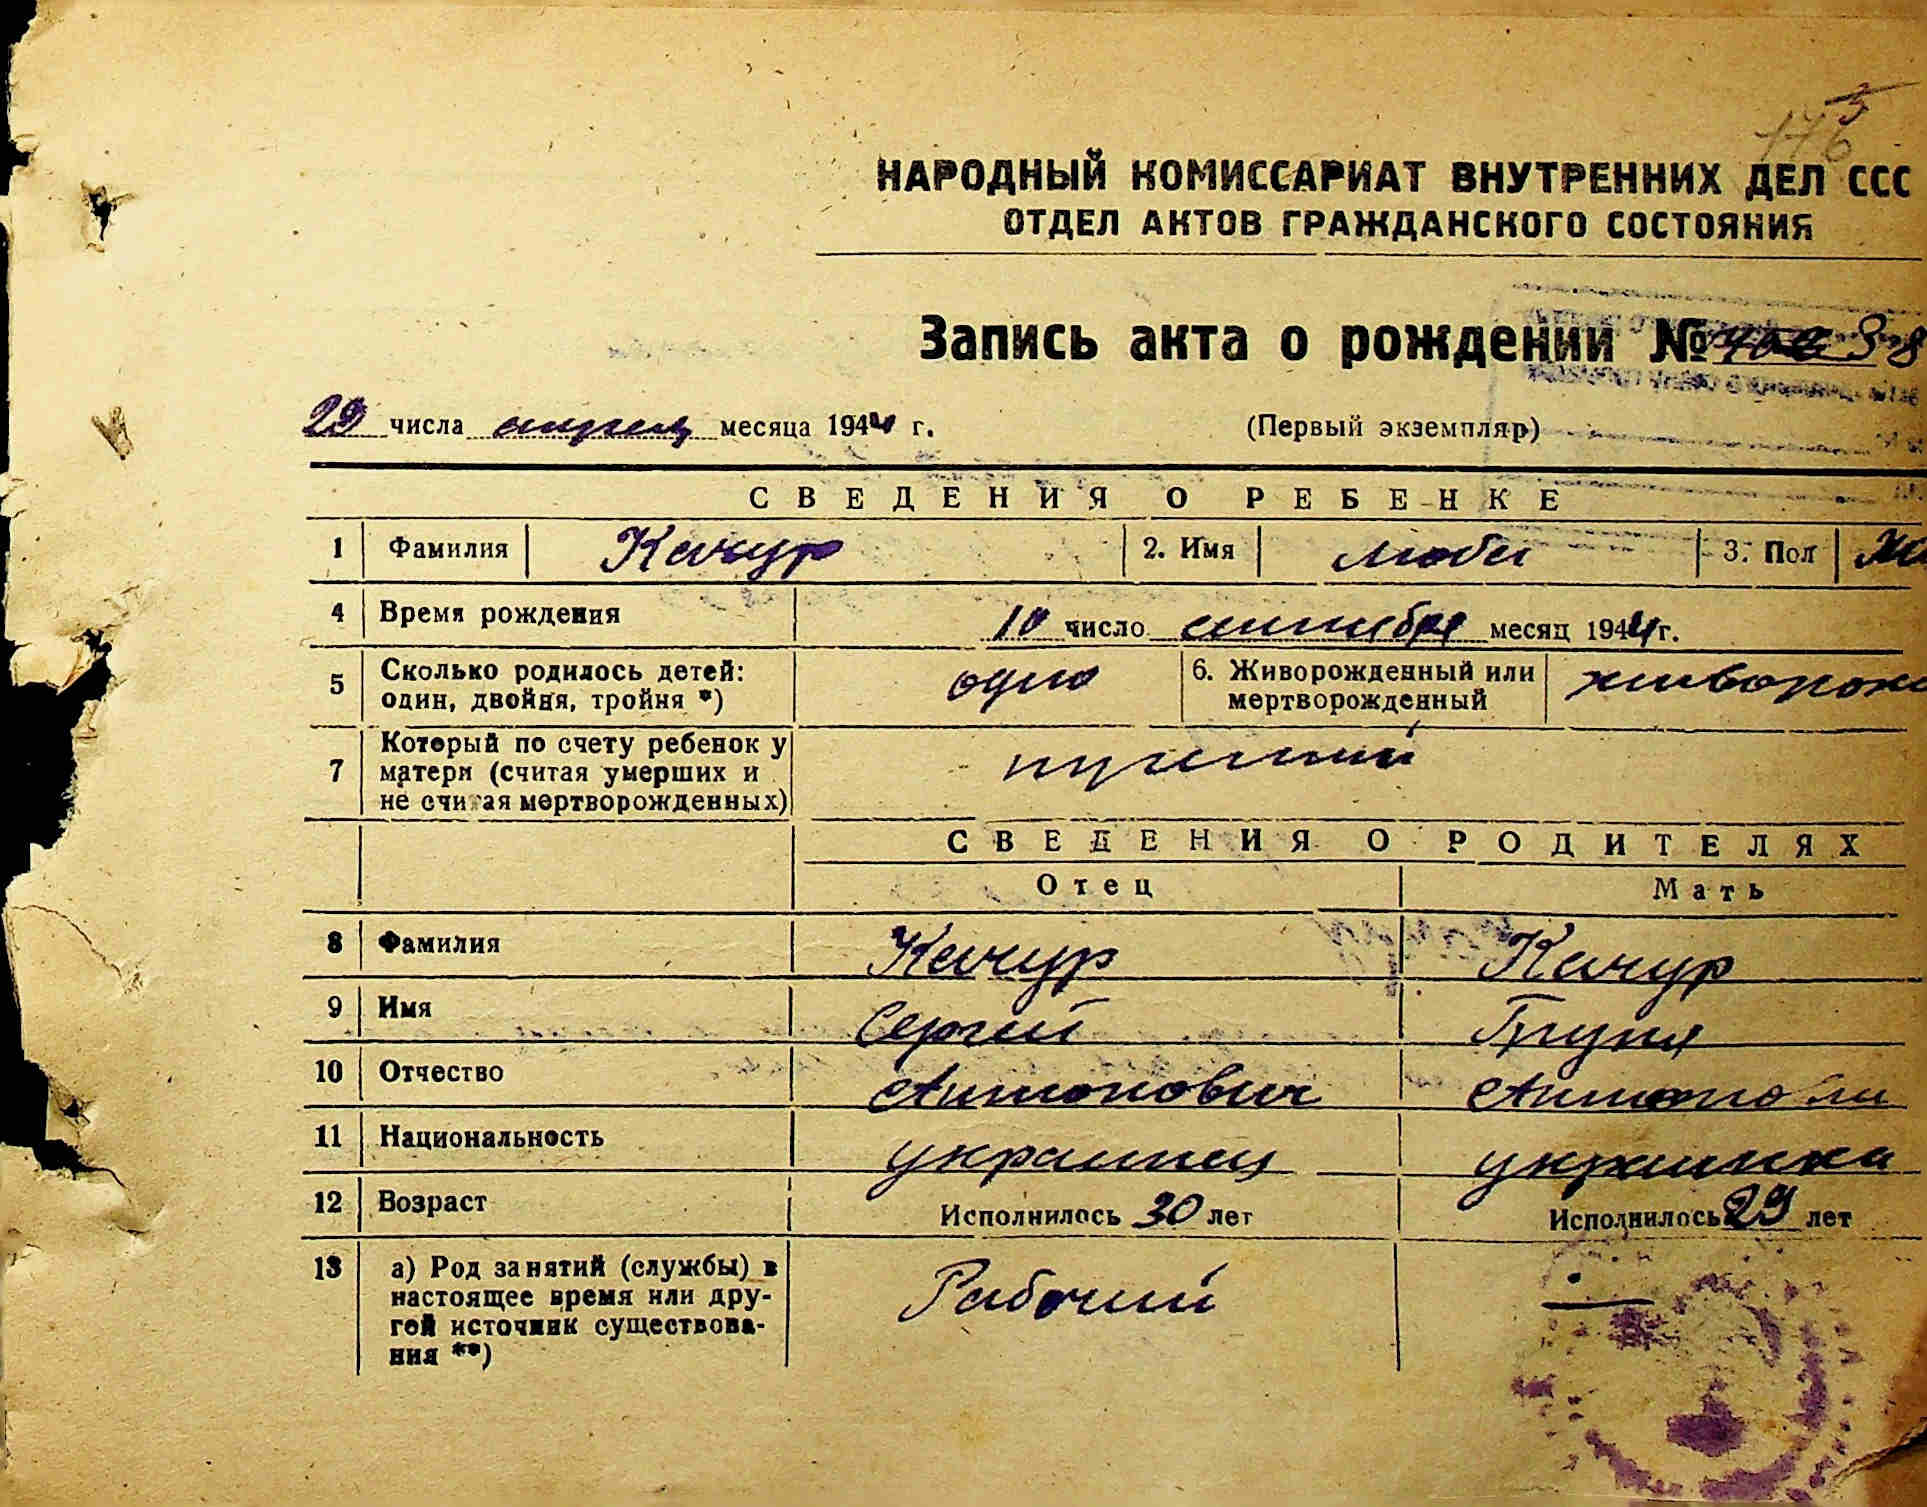 176
НАРОДНЫЙ КОМИССАРИАТ ВНУТРЕННИХ ДЕЛ ССС
ОТДЕЛ АКТОВ ГРАЖДАНСКОГО СОСТОЯНИЯ
Запись акта о рождении № 38
29 числа апреля месяца 1944 г. (Первый экземпляр)
СВЕДЕНИЯ О РЕБЕНКЕ
1 Фамилия Качур 2. Имя Люба 3. Пол Же
4 Время рождения 10 число сентября месяц 1941 г.
5 Сколько родилось детей: один, двойня, тройня *) одно 6. Живорожденный или мертворожденный живорожд
7 Который по счету ребенок у матери (считая умерших и не считая мертворожденных)
СВЕДЕНИЯ О РОДИТЕЛЯХ
Отец Мать
8 Фамилия Качур Качур
9 Имя Сергей Груня
10 Отчество Антонович Антонов
11 Национальность украинец украинка
12 Возраст Исполнилось 30 лет Исполнилось 29 лет
13 а) Род занятий (службы) в настоящее время или другой источник существования **) Рабочий